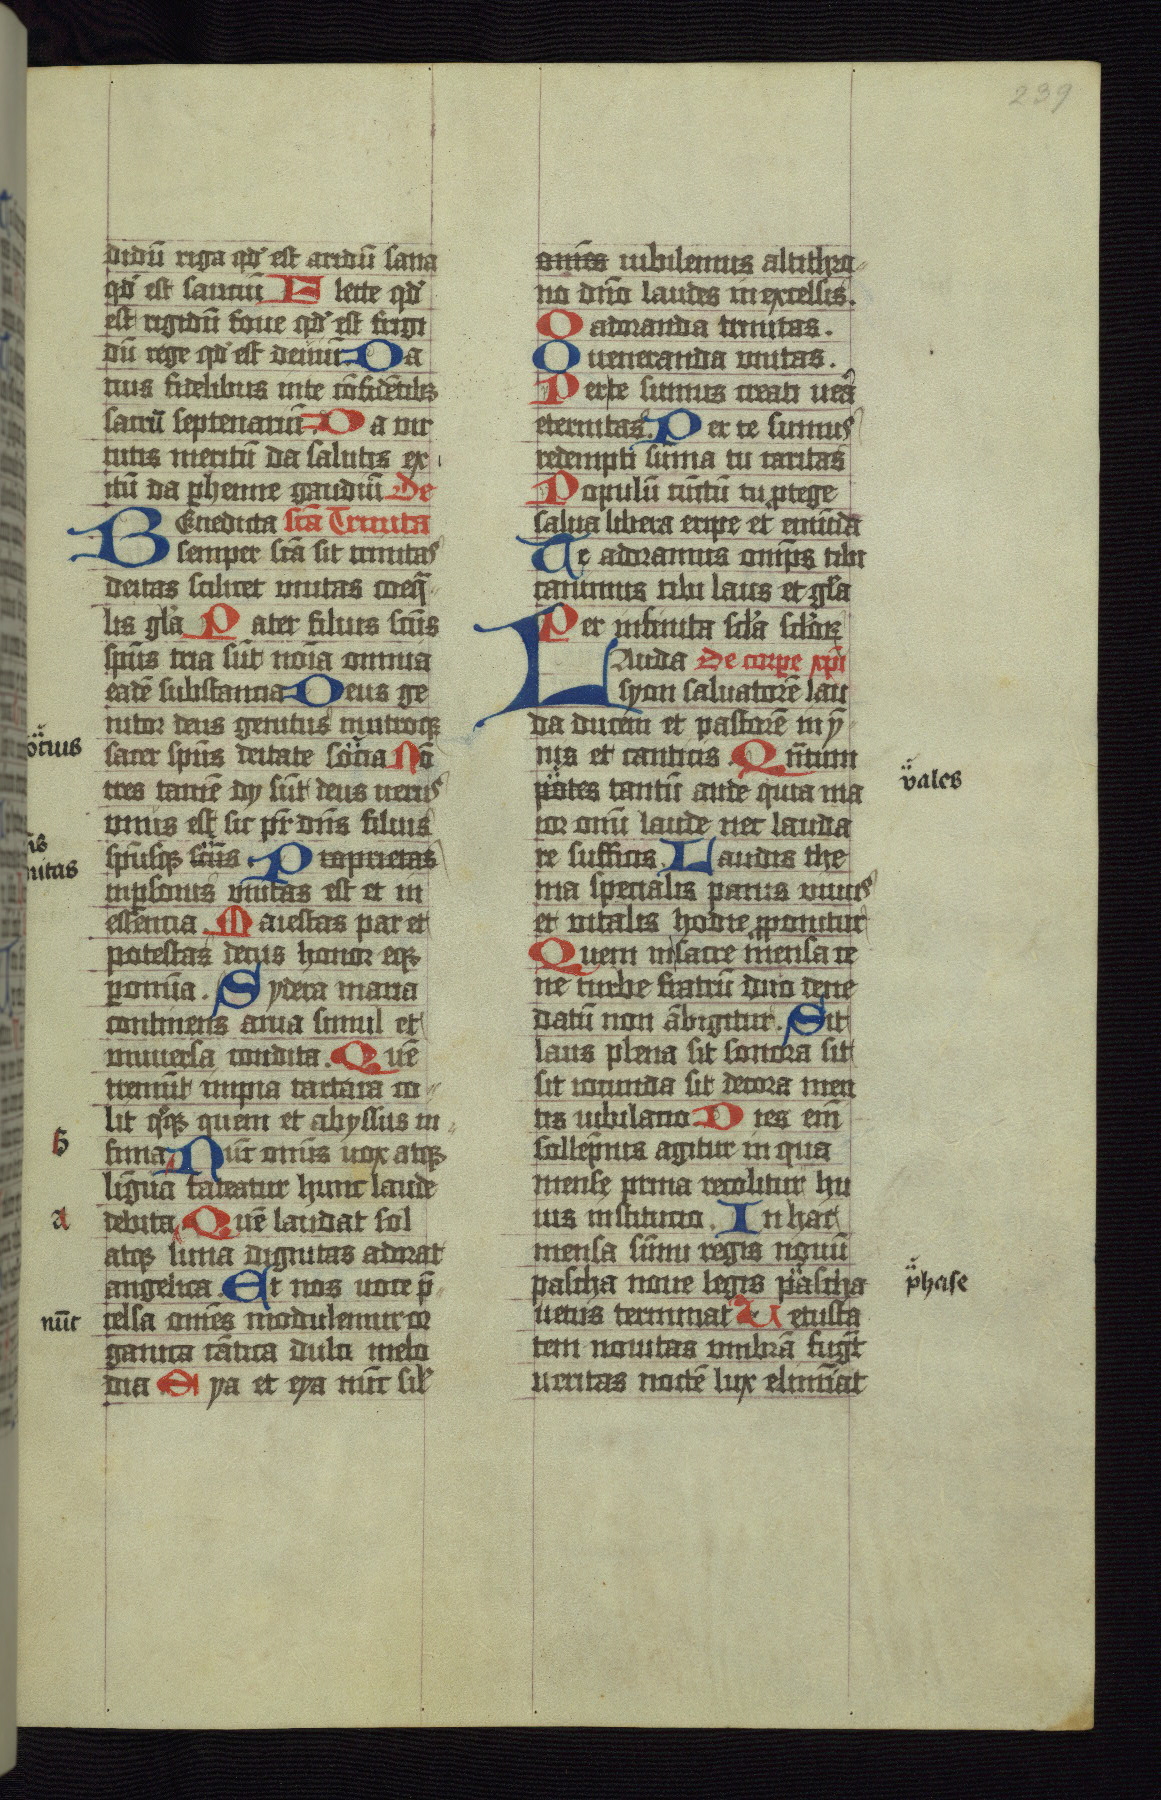 239
didū riga qd' est aridū sana
qd' est sauciū Flecte qd'
est rigidū foue qd' est frigi
dū rege qd' est deuiū Da
tuis fidelibus inte cōfidētibꝫ
sacrū septenariū. Da uir
tutis meritū da salutis ex
itū da ꝑhenne gaudiū De
BEnedicta scā Trinita
semper scā sit trinitas
deitas scilicet unitas coeq̄
lis gl'a Pater filius scūs
spūs tria sūt noīa omnia
eadē substancia Deus ge
nitor deus genitus inutroqꝫ
sacer spūs deitate socia Nō
tres tamē dij sūt deus uerus
unus est sic pr̄ dn̄s filius
spūsqꝫ scūs. Proprietas
inꝑsonis unitas est et in
essencia. Maiestas par et
potestas decus honor eqꝫ
ꝑomīa. Sydera maria
continens arua simul et
uniuersa condita. Quē
tremūt impia tartara co
lit qͦqꝫ quem et abyssus in
fima Nūc omīs uox atqꝫ
lingua fateatur hunc laude
debita Quē laudat sol
atqꝫ luna dignitas adorat
angelica. Et nos uoce p̄
celsa om̄es modulemur or
ganica cātica dulci melo
dia Eya et eya nūc sil'
otius
nitas
nūc
om̄es iubilemus altithro
no dn̄o laudes in excelsis.
O adoranda trinitas.
O ueneranda unitas.
Perte sumus creati uera
eternitas. Per te sumus
redempti sūma tu caritas
Populū cūctū tu ꝓtege
salua libera eripe et emūda
Te adoramus omīps tibi
canimus tibi laus et gl'a
Per infinita scl'a scl'oꝝ
LAuda De corpe xp̄i
syon saluatorē lau
da ducem et pastorē in y
nis et canticis. Qn̄tum
potes tantū aude quia ma
ior omī laude nec lauda
re sufficis. Laudis the
ma specialis panis uiuus
et uitalis hodie ꝓponitur
Quem in sacre mensa ce
ne turbe fratrū duo dene
datū non ābigitur. Sit
laus plena sit sonora sit
sit iocunda sit decora men
tis iubilatio Dies em̄
sollēpnis agitur in qua
mense prima recolitur hu
ius institucio. In hac
mensa sūmi regis nouū
pascha noue legis pascha
uetus terminat Uetusta
tem nouitas umbrā fugat
ueritas noctē lux elimīat
vales
phase